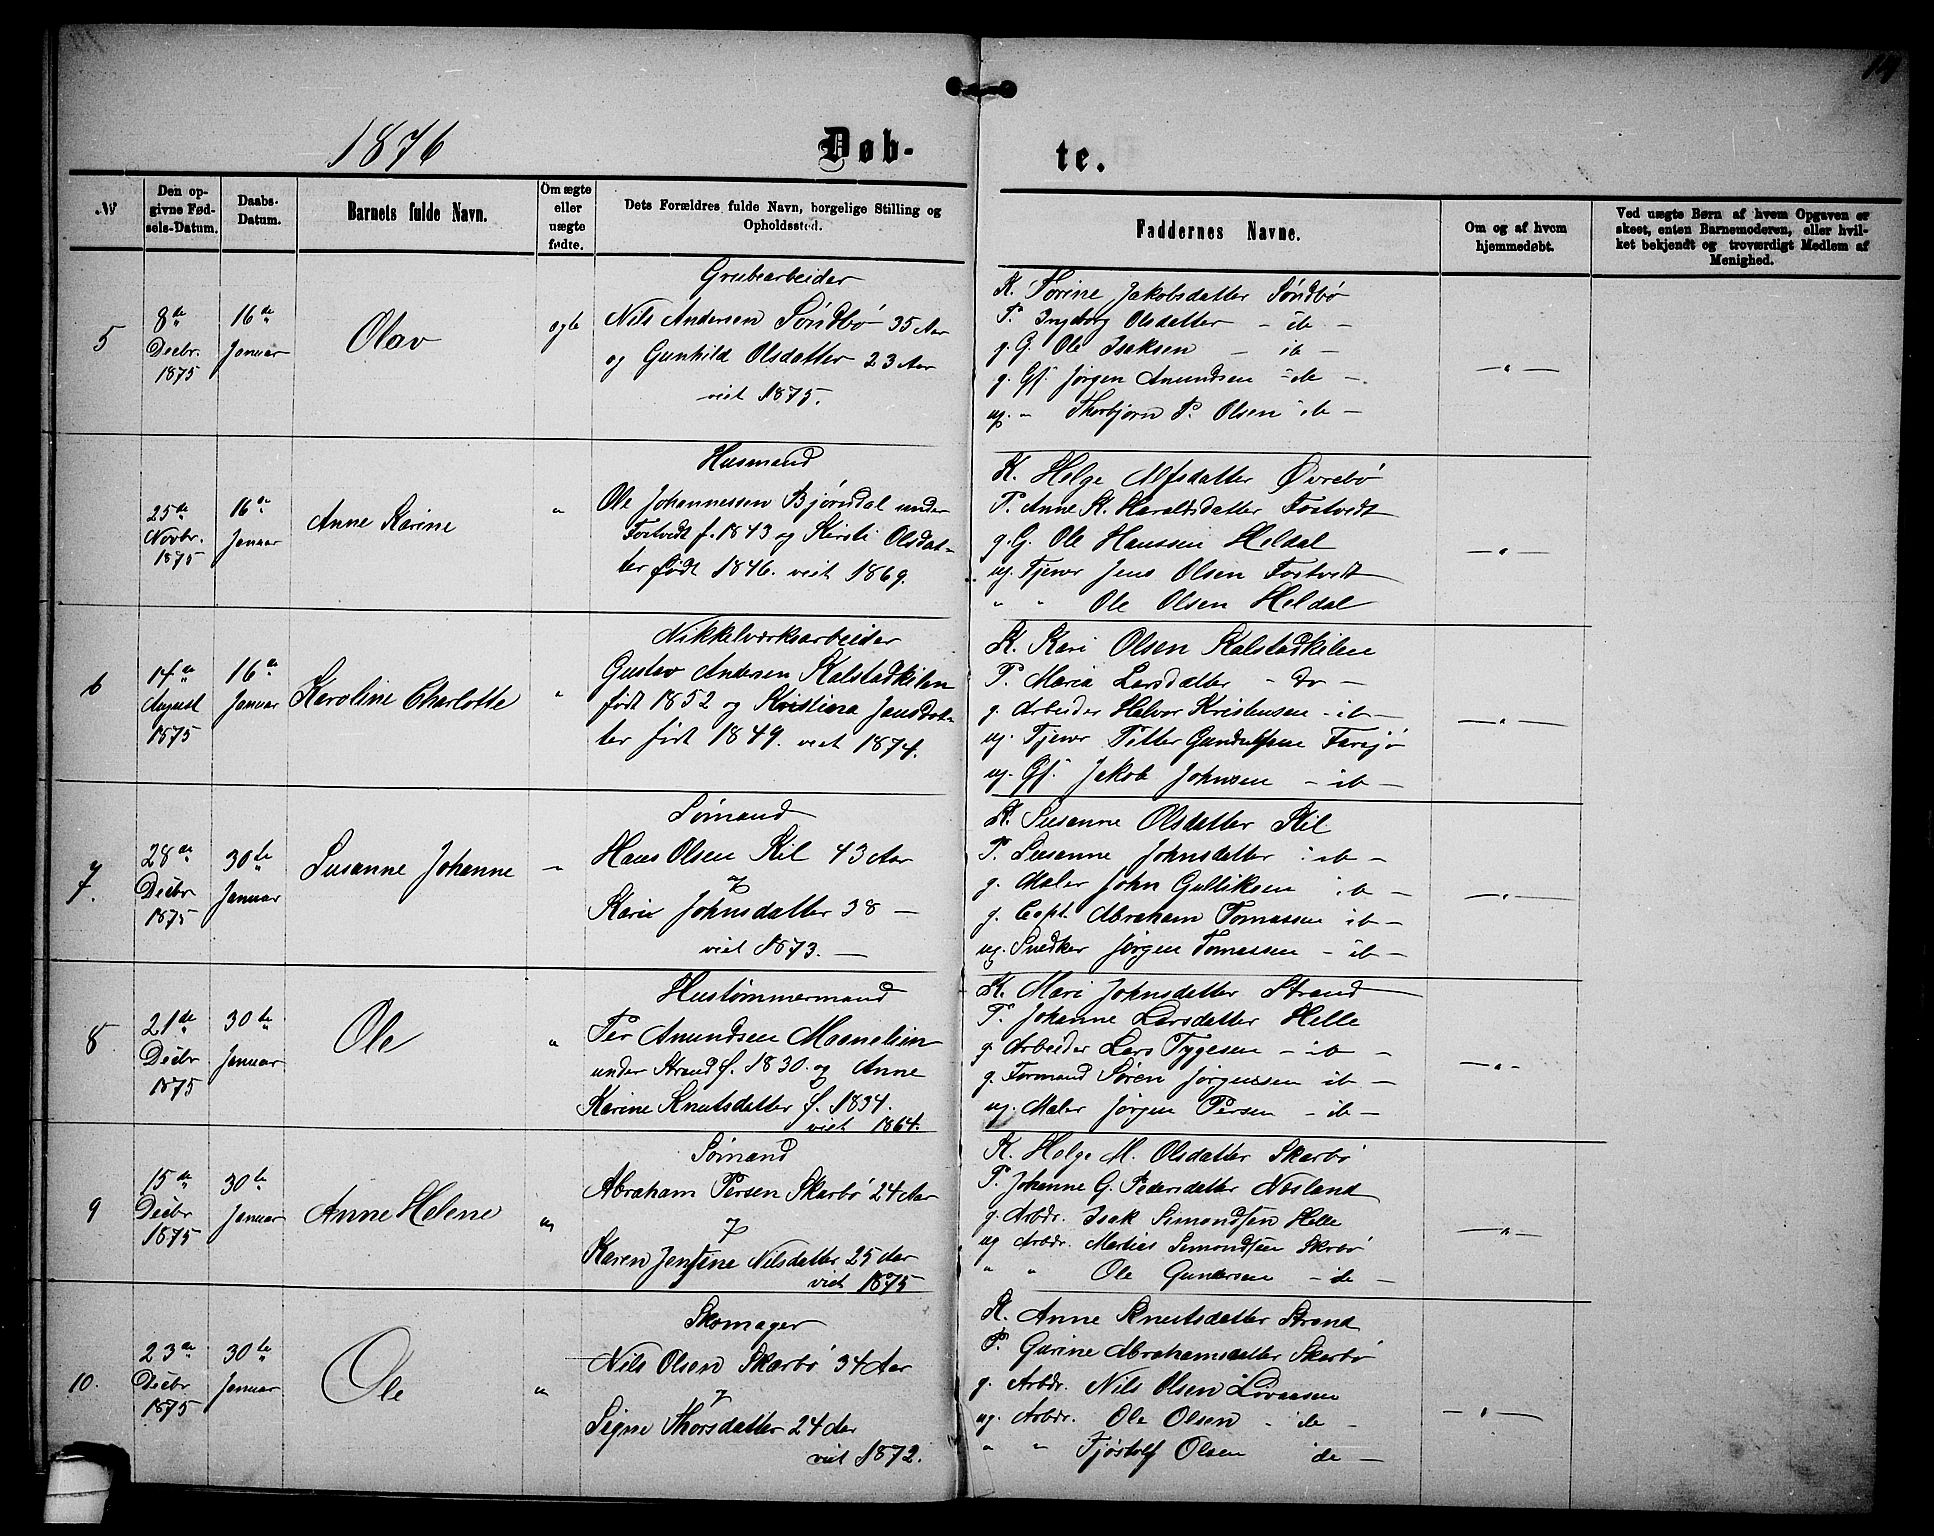 14
1876
Døb-
te.
№
Den op-
givne Fød-
sels-Datum.
Daabs-
Datum.
Barnets fulde Navn.
Om ægte
eller
uægte
fødte.
Dets Forældres fulde Navn, borgelige Stilling og
Opholdssted.
Faddernes Navne.
Om og af hvem
hjemmedøbt.
Ved uægte Børn af hvem Opgaven er
skeet, enten Barnemoderen, eller hvil-
ket bekjendt og troværdigt Medlem af
Menighed.
5
8de
Decbr.
1875
16de
Januar
Olav
ægte
Grubearbeider
Nils Andersen Söndbö 35 Aar
og Gunhild Olsdatter 23 Aar
viet 1875.
K. Torine Jakobsdatter Söndbö
P. Ingborg Olsdatter - ib -
g. G. Ole Isaksen - ib -
g. Gf. Jörgen Amundsen - ib -
ug. " Thorbjörn P. Olsen ib -
- " -
25de
Novbr.
1875
16de
Januar
Anne Karine
"
Husmand
Ole Johannessen Björndal under
Fostvedt f. 1843 og Kirsti Olsdat-
ter födt 1846. viet 1869.
K. Helge Alfsdatter Øvrebö
P. Anne K. Haraldsdatter Fostvedt
g. G. Ole Hanssen Heldal
ug. Tjener Jens Olsen Fostvedt
" " Ole Olsen Heldal
- " -
6
14de
August
1875
16de
Januar
Karoline Charlotte
"
Nikkelværksarbeider
Gustav Andersen Kalstadkilen
födt 1852 og Kristina Jansdat-
ter födt 1849. viet 1874.
K. Kari Olsen Kalstadkilen
P. Maria Larsdatter - do -
g. Arbeider Halvor Kristensen - ib -
ug. Tjener Petter Farsjö
ug. Gf. Jakob Johnsen - ib -
- " -
7.
28de
Decbr
1875
30te
Januar
Susanne Johanne
"
Sömand
Hans Olsen Kil 43 Aar
og
Karen Johnsdatter 38 -
viet 1873. -
K. Susanne Olsdatter Kil
P. Susanne Johnsdatter ib -
g. Maler John Gulliksen ib -
g. Capt. Abraham Tomassen ib -
ug. Snedker Jörgen Tomassen - ib -
- " -
8
21de
Decbr
1875
30te
Januar
Ole
"
Hustömmermand
Per Amundsen
under Strand f. 1830. og Anne
Karine Knutsdatter f. 1834.
viet 1864.
K. Mari Johnsdatter Strand
P. Johanne Larsdatter Helle
g. Arbeider Lars Tygesen - ib -
g. Formand Sören Jörgenssen ib -
ug. Maler Jörgen Persen - ib -
- " -
9
15de
Decbr
1875
30te
Januar
Anne Helene
"
Sömand
Abraham Persen Skarbö 24 Aar
og
Karen Jensine Nilsdatter 25 Aar
viet 1875
K. Helge M. Olsdatter Skarbö
P. Johanne G. Pedersdatter Næsland
g. Arbdr. Isak Simondsen Helle
ug Arbdr. Mathias Simondsen Skrbö
" " Ole Gundersen - do -
- " -
10.
23de
Decbr
1875
30te
Januar
Ole
"
Skomager
Nils Olsen Skarbö 34 Aar
og
Signe Thorsdatter 24 Aar
viet 1872.
K. Anne Knutsdatter Strand
P. Gurine Abrahamsdatter Skarbö
g. Arbdr. Nils Olsen Lövaasen
ug. Arbdr. Ole Olsen - do -
" " Tjöstolf Olsen do -
- " -